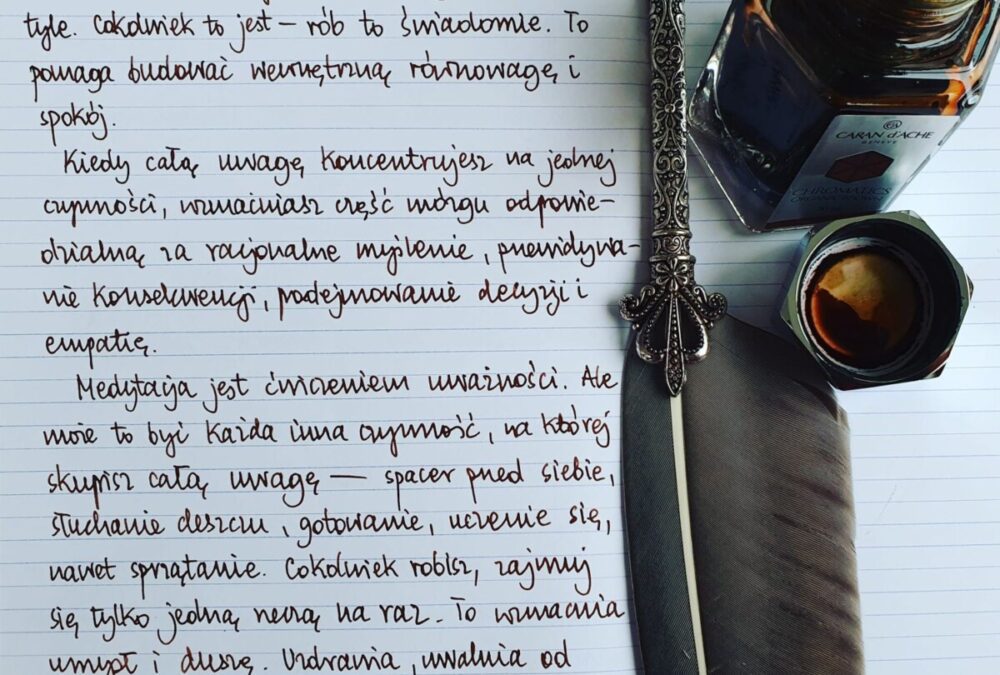 tyle. Cokolwiek to jest – rób to świadomie. To
pomaga budować wewnętrzną równowagę i
spokój.
Kiedy całą uwagę koncentrujesz na jednej
czynności, wzmacniasz część mózgu odpowie-
dzialną za racjonalne myślenie, przewidywa-
nie konsekwencji, podejmowanie decyzji i
empatię.
Medytacja jest ćwiczeniem uważności. Ale
może to być każda inna czynność, na której
skupisz całą uwagę — spacer przed siebie,
słuchanie deszczu, gotowanie, uczenie się,
nawet sprzątanie. Cokolwiek robisz, zajmuj
się tylko jedną rzeczą na raz. To wzmacnia
umysł i duszę. Uzdrawia, uwalnia od
CARAN d'ACHE
GENÈVE
CHROMATICS